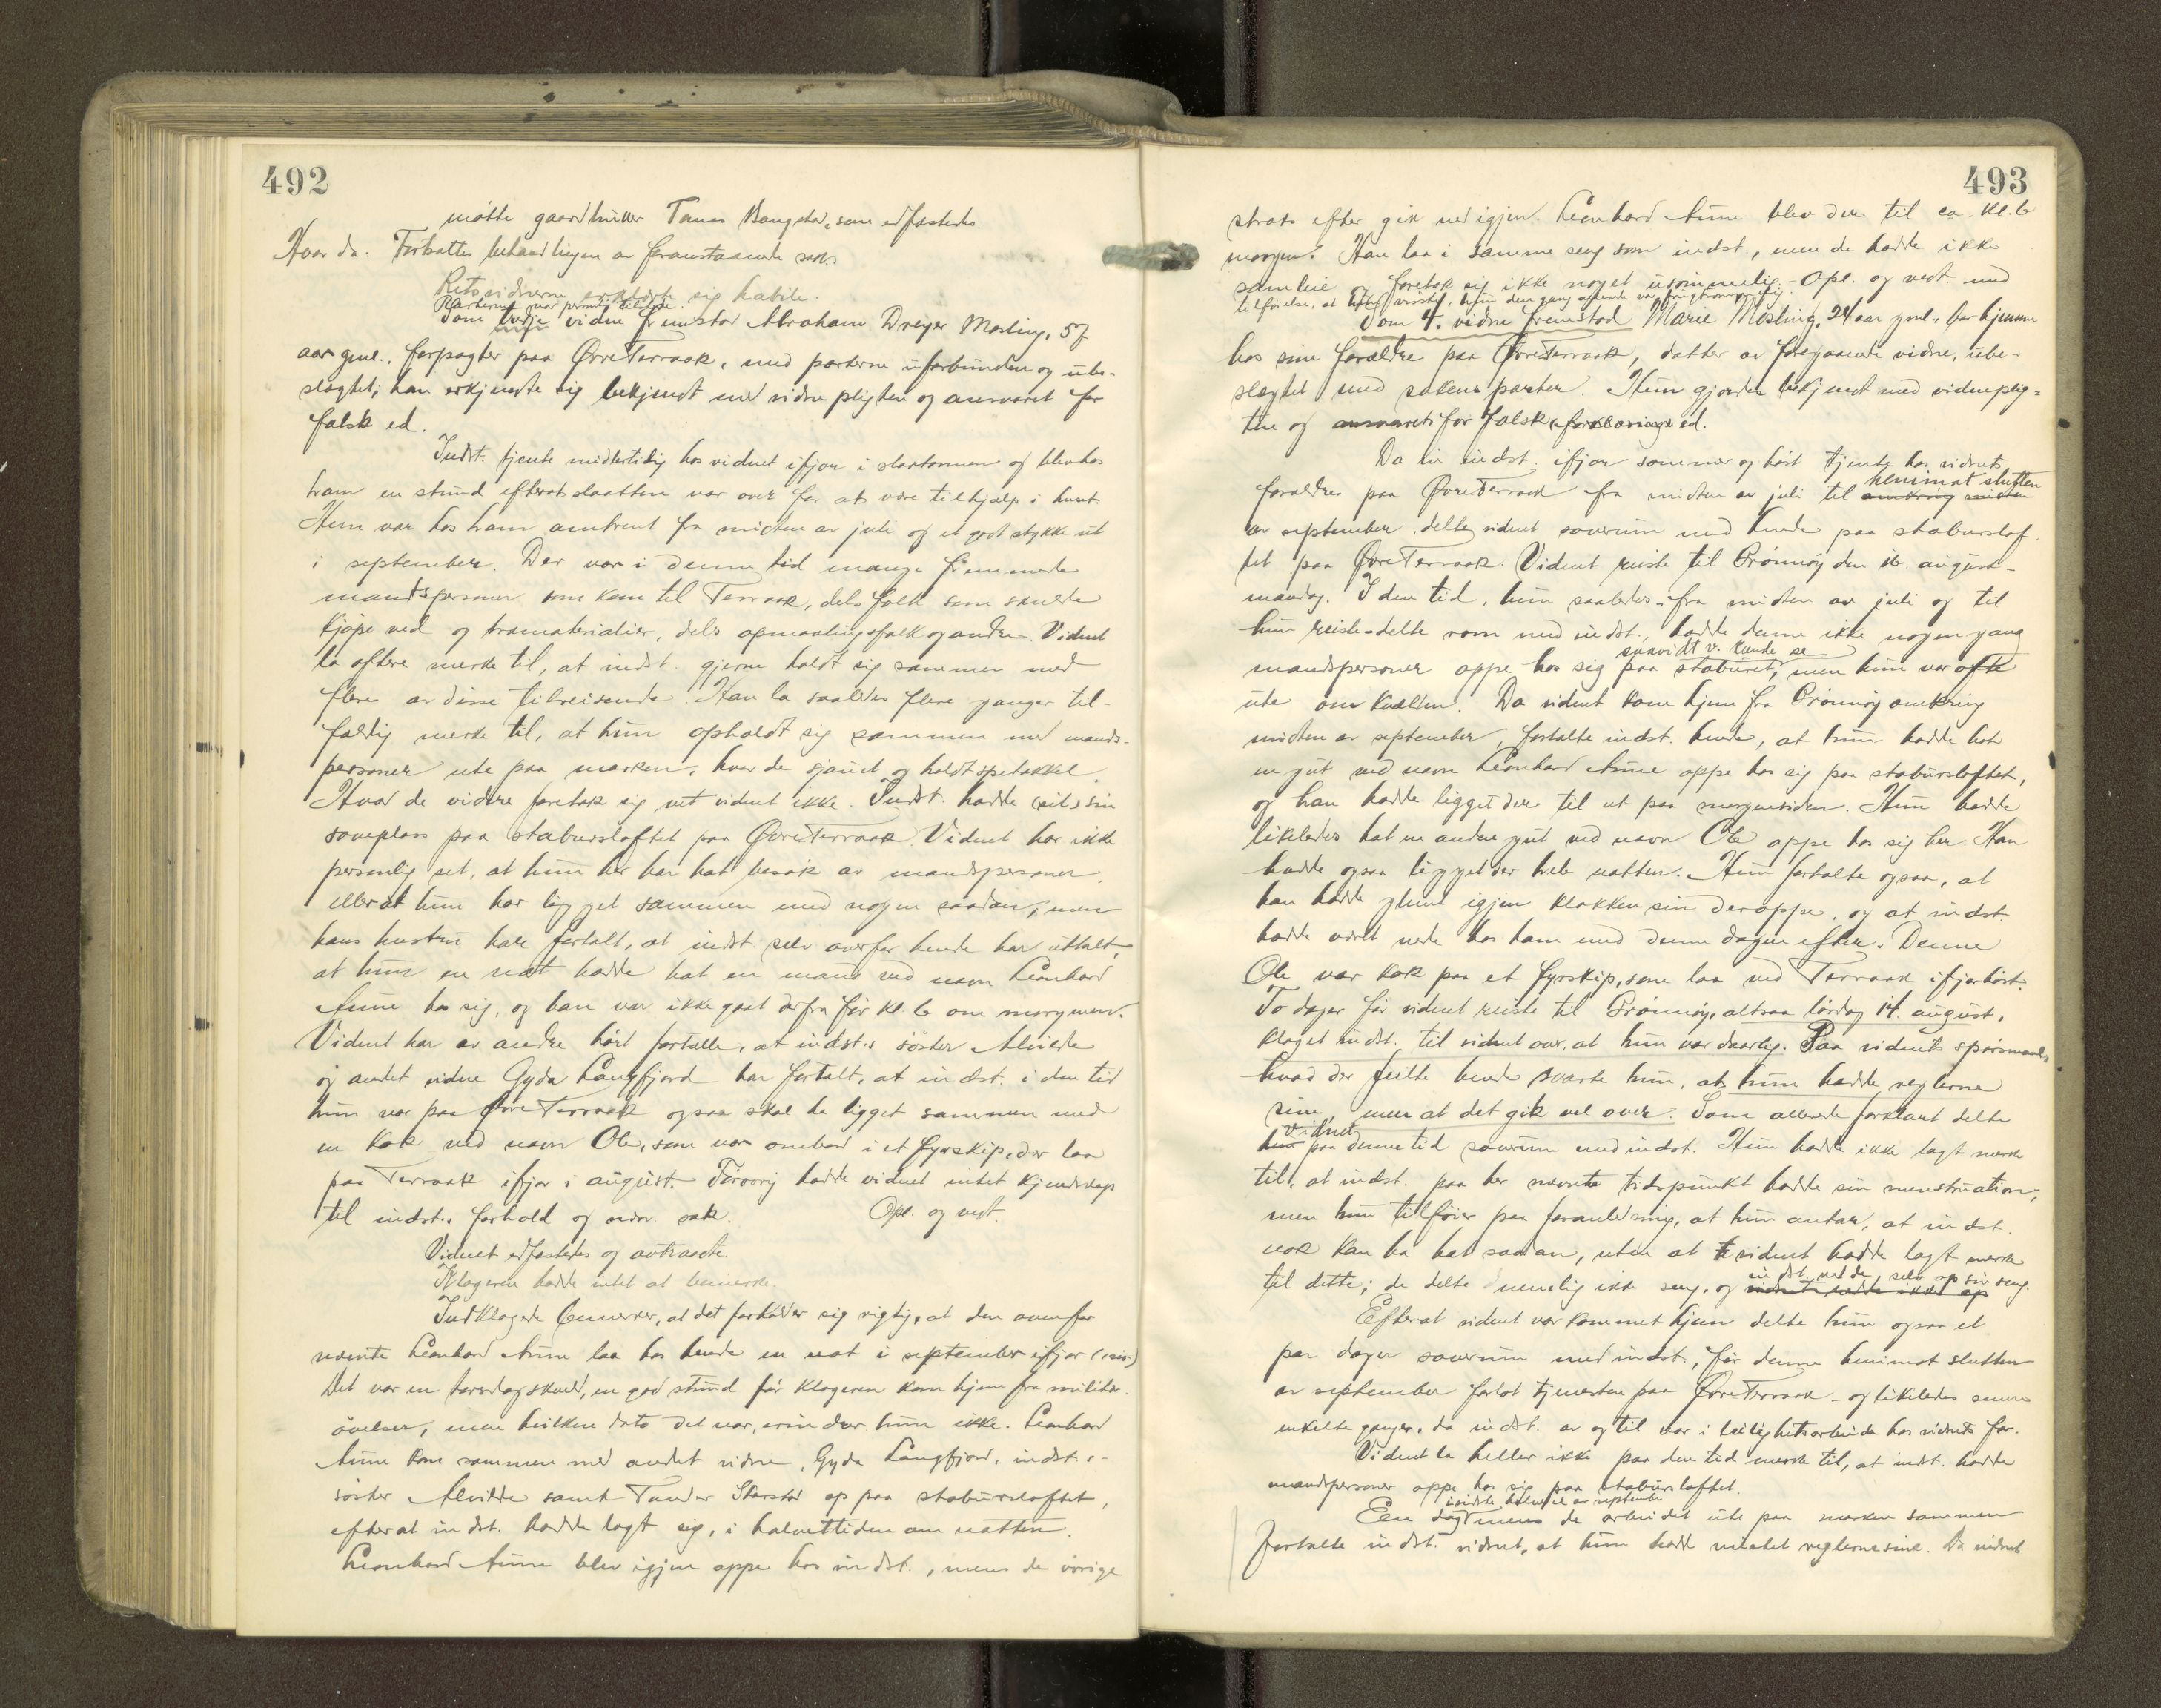 492
møtte gaardbruker Tomas Bangstad, som edfæstedes.
Hvor da: Fortsattes behandlingen av foranstaaende sak.
Retsvidnerne erklærte sig habile.
Parterne var personlig tilstede.
Som tredje vidne fremstod Abraham Dreyer Mosling, 57
aar gml., forpagter paa ØvreTerraak, med parterne uforbunden og ube-
slægtet; han erkjendte sig bekjendt med vidnepligten og ansvaret for
falsk ed.
Indst. tjente midlertidig hos vidnet ifjor i slaatonnen og blev hos
ham en stund efterat slaatten var over for at være tilhjælp i huset.
Hun var hos ham omtrent fra midten av juli og et godt stykke ut
i september. Der var i denne tid mange fremmede
mandspersoner som kom til Terraak, dels folk som skulde
kjøpe ved og tramaterialier, dels opmaalingsfolk og andre. Vidnet
la oftere merke til, at indst. gjerne holdt sig sammen med
flere av disse tilreisende. Han la saaledes flere ganger til-
fældig merke til, at hun opholdt sig sammen med mands-
personer ute paa marken, hvor de sjauet og holdt spetakkel.
Hvad de videre foretok sig, vet vidnet ikke. Indst. hadde (sit) sin
soveplass paa stabursloftet paa ØvreTerraak. Vidnet har ikke
personlig set, at hun her har hat besøk av mandspersoner,
eller at hun har ligget sammen med nogen saadan, men
hans hustru har fortalt, at indst. selv overfor hende har uttalt,
at hun en nat hadde hat en mand ved navn Leonhard
Aune hos sig, og han var ikke gaat derfra før kl. 6 om morgenen.
Vidnet har av andre hørt fortælle, at indst.s søster Alvilde
og andet vidne Gyda Langfjord har fortalt, at indst. i den tid
hun var paa Øvre Terraak ogsaa skal ha ligget sammen med
en kok ved navn Ole, som var ombord i et fyrskip, der laa
paa Terraak ifjor i august. Forøvrig hadde vidnet intet kjendskap
til indst.s forhold og nærv. sak. Opl. og vedt.
Vidnet edfæstedes og avtraadte.
Klageren hadde intet at bemerke.
Indklagede bemerker, at det forholder sig rigtig, at den ovenfor
nævnte Leonhard Aune laa hos hende en nat i september ifjor
Det var en torsdagskveld, en god stund før klageren kom hjem fra militær-
øvelser, men hvilken dato det var, erindrer hun ikke. Leonhard
Aune kom sammen med andet vidne, Gyda Langfjord, indst.s
søster Alvilde samt Tander Skarstad op paa stabursloftet,
efterat indst. hadde lagt sig, i halvettiden om natten.
Leonhard Aune blev igjen oppe hos indst., mens de øvrige
493
straks efter gik ned igjen. Leonhard Aune blev der til ca. kl. 6
morgen. Han laa i samme seng som indst., men de hadde ikke
samleie og foretok sig ikke noget usømmelig. Opl. og vedt. med
tilføielse, at hun visste, hun den gang allerede var frugtsommelig.
Som 4. vidne fremstod Marie Mosling, 24 aar gml., bor hjemme
hos sine forældre paa ØvreTerraak, datter av foregaaende vidne, ube-
slægtet med sakens parter. Hun gjordes bekjendt med vidneplig-
ten og ansvaret for falsk forklaring ed.
Da indst. ifjor sommer og høst tjente hos vidnets
forældre paa ØvreTerraak fra midten av juli til omkring midten henimot slutten
av september delte vidnet soverum med hende paa staburslof-
tet paa ØvreTerraak. Vidnet reiste til Brønnøy den 16. august -
mandag. I den tid, hun saaledes - fra midten av juli og til
hun reiste - delte rom med indst., hadde denne ikke nogen gang
mandspersoner oppe hos sig paa staburet, saavidt v. kunde se men hun var ofte
ute om kvælden. Da vidnet kom hjem fra Brønnøy omkring
midten av september, fortalte indst. hende, at hun hadde hat
en gut ved navn Leonhard Aune oppe hos sig paa stabursloftet,
og han hadde ligget der til ut paa morgensiden. Hun hadde
likeledes hat en anden gut ved navn Ole oppe hos sig her. Han
hadde ogsaa ligget der hele natten. Hun fortalte ogsaa, at
han hadde glemt igjen klokken sin deroppe, og at indst.
hadde været nede hos ham med denne dagen efter. Denne
Ole var kok paa et fyrskip, som laa ved Terraak ifjorhøst.
To dager før vidnet reiste til Brønnøy, altsaa lørdag 14. august,
klaget indst. til vidnet over, at hun var daarlig. Paa vidnets spørsmaal,
hvad der feilte hende svarte hun, at hun hadde reglerne
sine, men at det gik vel over. Som allerede forklart delte
hun vidnet paa denne tid soverum med indst. Hun hadde ikke lagt merke
til, at indst. paa her nævnte tidspunkt hadde sin menstruation,
men hun tilføier paa foranledning, at hun antar, at indst.
nok kan ha hat saadan, uten at vidnet hadde lagt merke
til dette; de delte nemlig ikke seng, og vidnet redde ikke op indst. redde selv op sin seng.
Efterat vidnet var kommet hjem delte hun ogsaa et
par dager soverum med indst., før denne henimot slutten
av september forlot tjenesten paa ØvreTerraak - og likeledes senere
enkelte ganger, da indst. av og til var i leilighetsarbeide hos vidnets far.
Vidnet la heller ikke paa den tid merke til, at indst. hadde
mandspersoner oppe hos sig paa stabursloftet.
Een dag i sidste halvdel av september mens de arbeidet ute paa marken sammen
fortalte indst. vidnet, at hun hadde mistet reglerne sine. Da vidnet